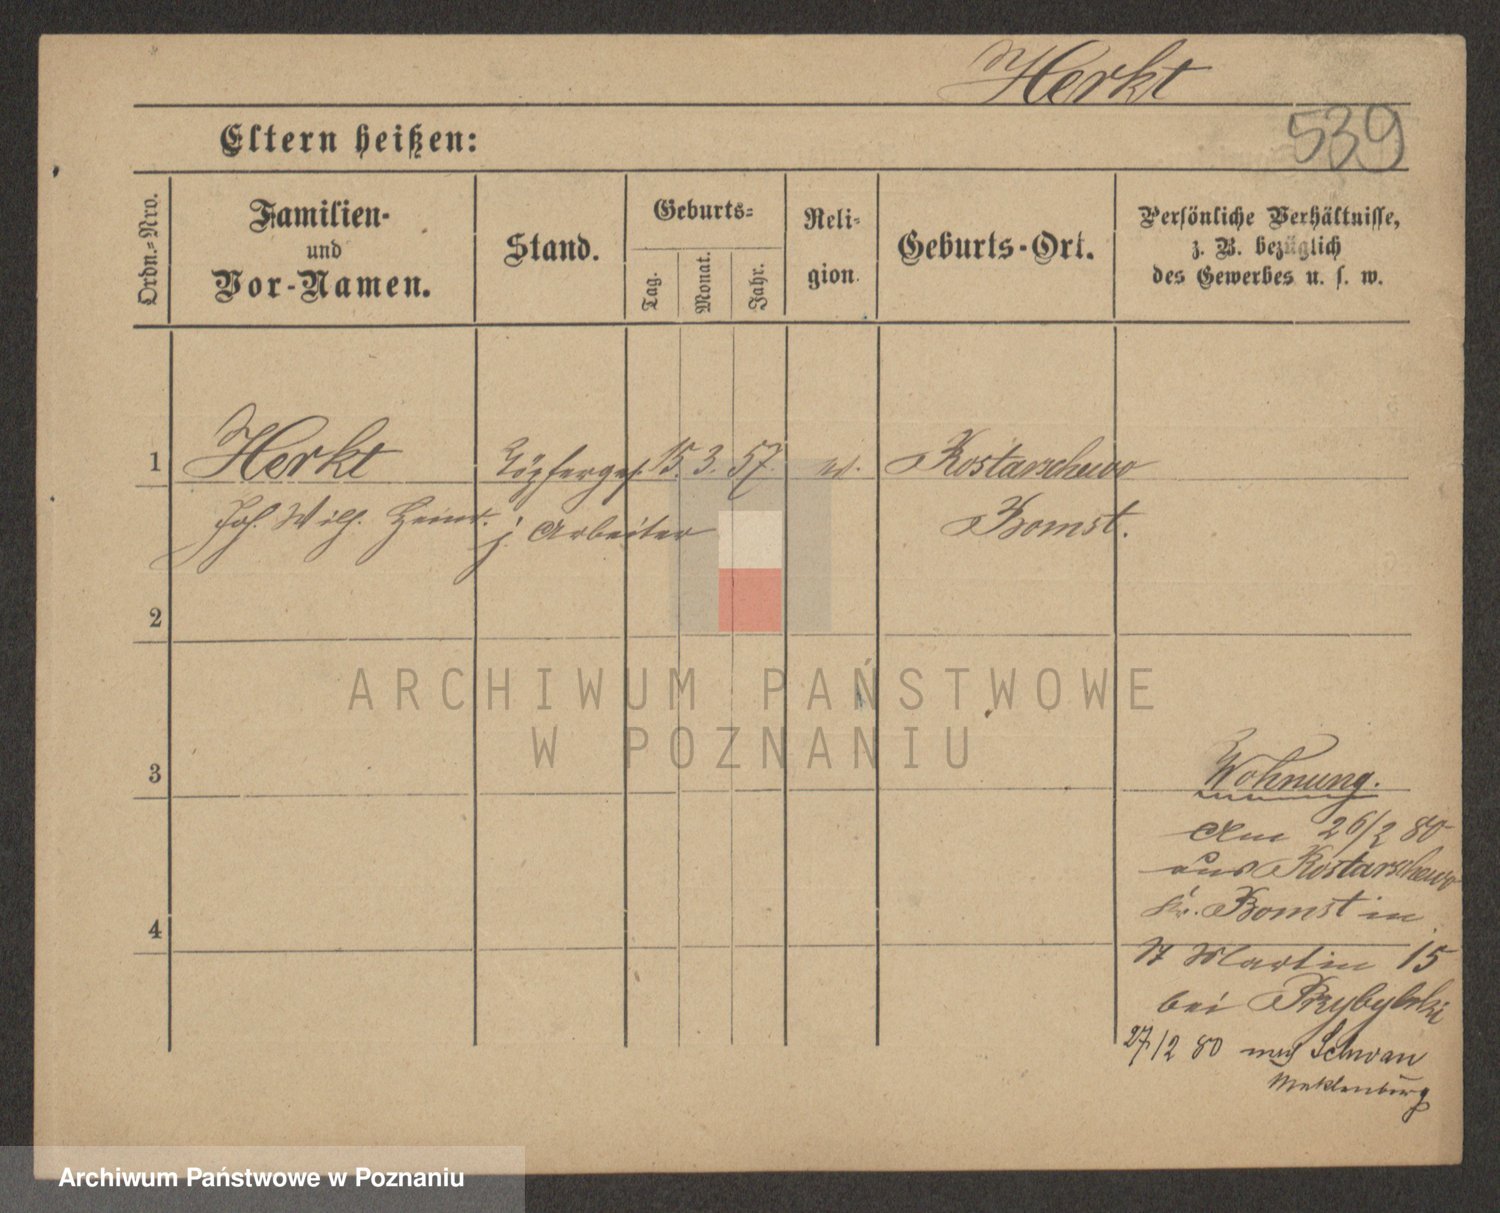 Herkt
539
Eltern heißen:
Ordn.=Nro.
Familien-
und
Vor-Namen.
Stand.
Geburts=
Tag.
Monat.
Jahr.
Reli-
gion.
Geburts-Ort.
Persönliche Verhältnisse,
z. B. bezüglich
des Gewerbes u. s. w.
1
Herkt
Töpferges. 15. 3. 57.
Kostarschewo
Joh. Wilh. Heinr.
j. Arbeiter
Bomst.
2
ARCHIWUM PAŃSTWOWE
W POZNANIU
3
Wohnung.
Am 26/2 80
aus Kostarschewo
Kr. Bomst in
St Martin 15
bei Przybylski
4
27/2 80 nach Schwan
Meklenburg
Archiwum Państwowe w Poznaniu